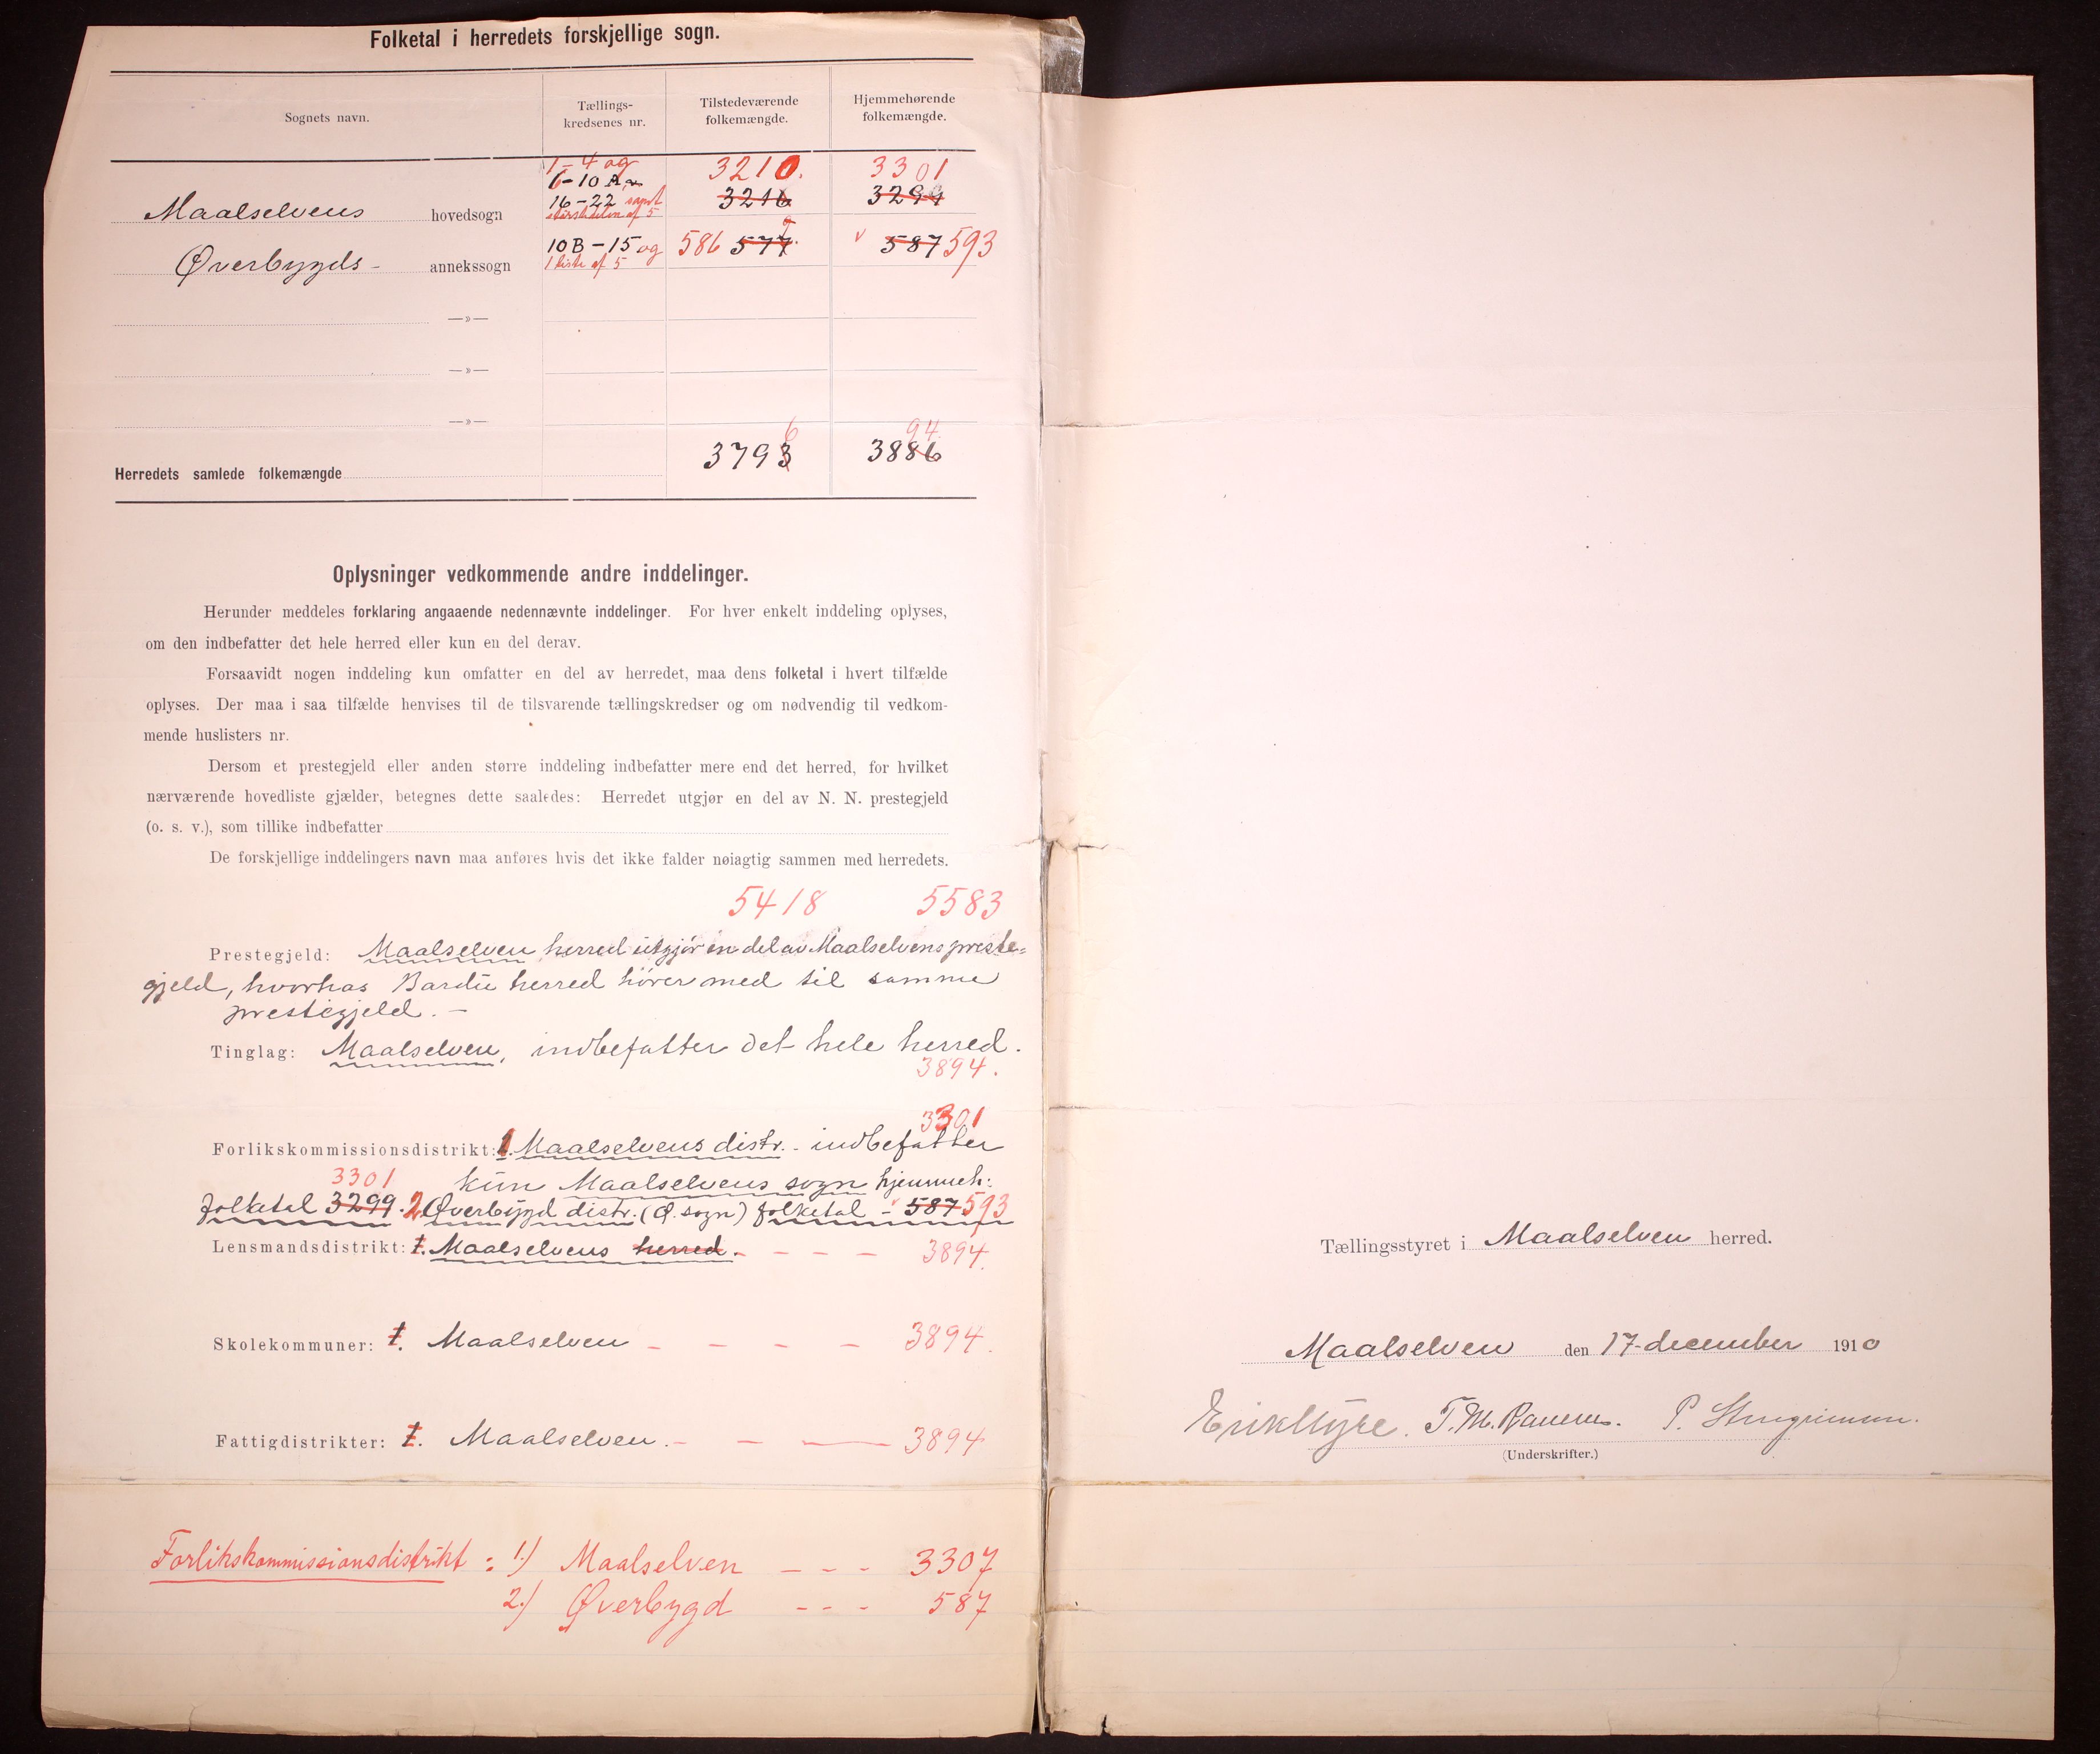 Folketal i herredets forskjellige sogn.
Sognets navn. Tællings-kredsenes nr. Tilstedeværende folkemængde. Hjemmehørende folkemængde.
1-4 og 3210. 3301
6-10 A
Maalselvens hovedsogn 16-22 samt 3216 3299
af 5
Øverbygds- annekssogn 10B-15 og 586 577 v 587 593
1 liste af 5
—»—
—»—
—»—
6 94
Herredets samlede folkemængde 3793 3886
Oplysninger vedkommende andre inddelinger.
Herunder meddeles forklaring angaaende nedennævnte inddelinger. For hver enkelt inddeling oplyses,
om den indbefatter det hele herred eller kun en del derav.
Forsaavidt nogen inddeling kun omfatter en del av herredet, maa dens folketal i hvert tilfælde
oplyses. Der maa i saa tilfælde henvises til de tilsvarende tællingskredser og om nødvendig til vedkom-
mende huslisters nr.
Dersom et prestegjeld eller anden større inddeling indbefatter mere end det herred, for hvilket
nærværende hovedliste gjælder, betegnes dette saaledes: Herredet utgjør en del av N. N. prestegjeld
(o. s. v.), som tillike indbefatter
De forskjellige inddelingers navn maa anføres hvis det ikke falder nøiagtig sammen med herredets.
5418 5583
Prestegjeld: Maalselven herred utgjør en del av Maalselvens preste-
gjeld, hvorhos Bardu herred hører med til samme
prestegjeld. -
Tinglag: Maalselven, indbefatter det hele herred.
3894.
3301
Forlikskommissionsdistrikt: 1. Maalselvens distr. - indbefatter
3301 kun Maalselvens sogn hjemmeh:
folketal 3299. 2. Øverbygd distr. (Ø. sogn) folketal - v 587 593
Lensmandsdistrikt: 1. Maalselvens herred. - - - - 3894.
Skolekommuner: 1. Maalselven - - - - 3894.
Fattigdistrikter: 1. Maalselven. - - — 3894
Forlikskommissionsdistrikt: 1.) Maalselven - - - 3307
2.) Øverbygd - - - 587
Tællingsstyret i Maalselven herred.
Maalselven den 17-december 1910
T. M. P.
(Underskrifter.)